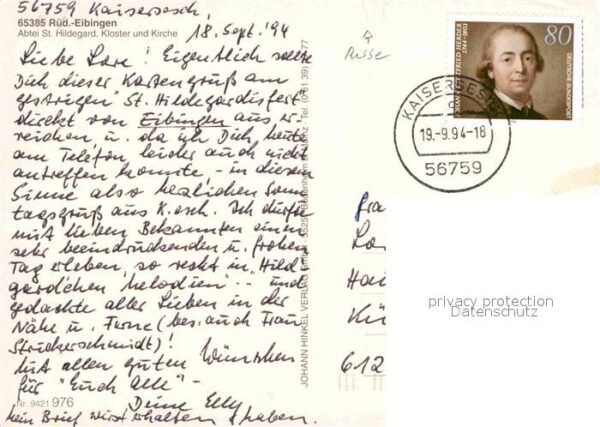 56759 Kaisersesch,
65385 Rüd.-Eibingen
Abtei St. Hildegard, Kloster und Kirche
18. Sept. '94
Liebe Lore! Eigentlich sollte
Dich dieser Kartengruß am
gestrigen St. Hildegardisfest
direkt von Eibingen aus er-
reichen, u. da ich Dich heute
am Telefon leider auch nicht
antreffen konnte, - in diesem
Sinne also herzlichen Sonn
tagsgruß aus K.esch. Ich durfte
mit lieben Bekannten einen
sehr beeindruckenden u. frohen
Tag erleben, so recht in "Hild
gard'chen Melodien" -- und
gedachte aller Lieben in der
Nähe u. Ferne (bes. auch Frau
Strickerschmidt)!
Mit allen guten Wünschen
für "Euch Alle" -
Deine Elly
Nr. 9421.976
mein Brief wirst erhalten haben.
JOHANN HINKEL VERLAG
JOHANN GOTTFRIED HERDER
1744-1803
80
DEUTSCHE BUNDESPOST
KAISERSESCH
19.-9.94-18
56759
Fra
Lor
Hai
Kü
612
privacy protection
Datenschutz